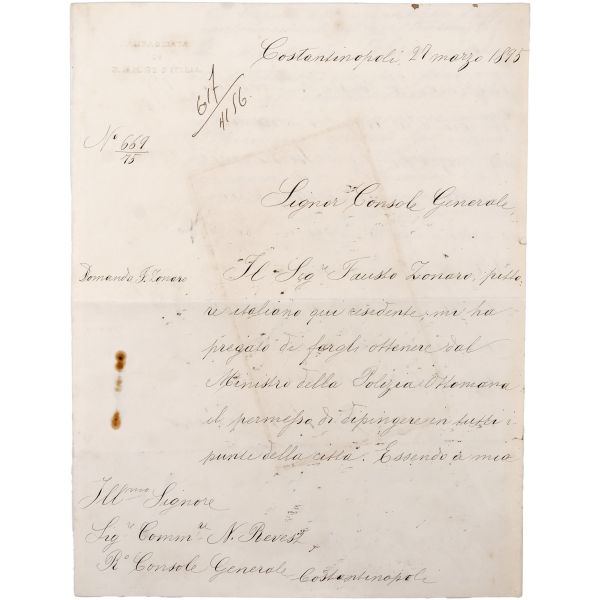 Costantinopoli, 27 marzo 1895
617/4156.
N.º 669/75
Signor Console Generale,
Domanda F. Zonaro
Il Sigr Fausto Zonaro, pitto-
re italiano qui residente, mi ha
pregato di fargli ottenere dal
Ministro della Polizia Ottomana
il permesso di dipingere in tutti i
punti della città. Essendo a mia
Illmo Signore
Sigr Comm.re N. Revest,
Ro Console Generale
Costantinopoli